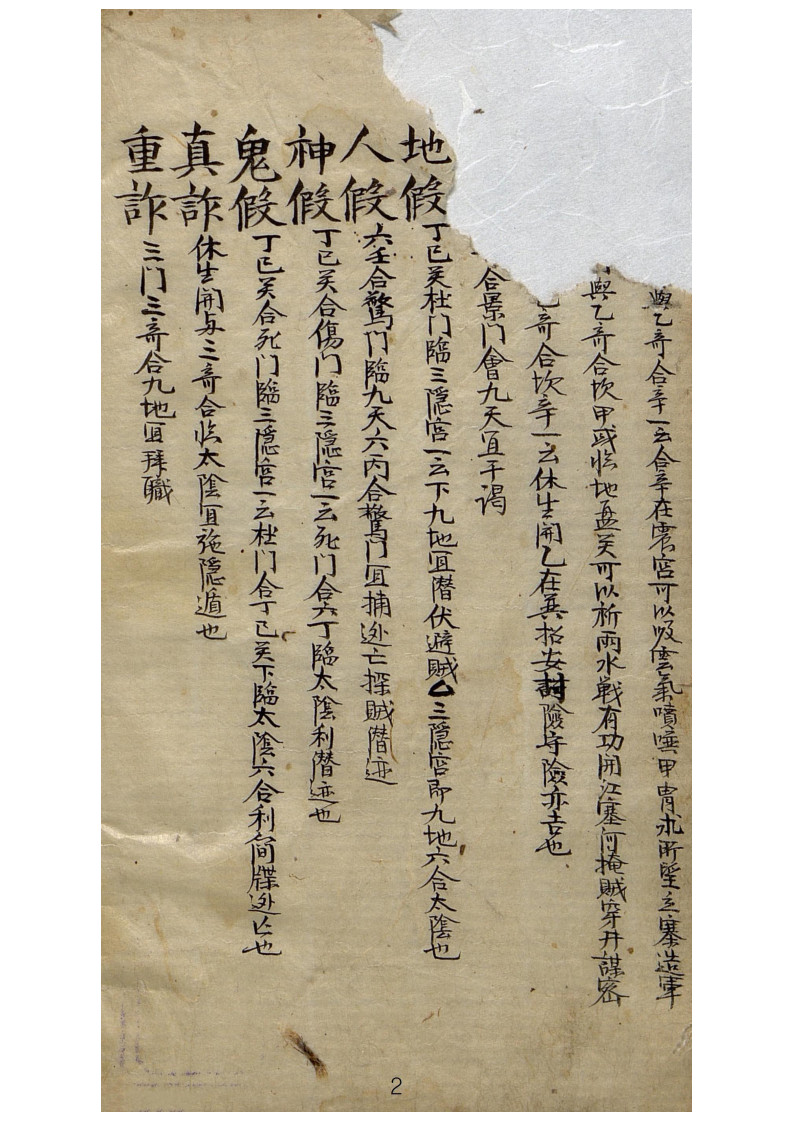 與乙竒合辛一云合辛在震宮可以吸雲氣噴唾甲冑求所望立寨造軍
與乙竒合坎甲或临地盘癸可以祈雨水戦有功開江塞河掩賊穿井謀密
竒合坎辛一云休生開乙在異招安險守險亦吉也
合景门會九天冝干谒
地假丁己癸杜门臨三隱宮一云下九地冝潜伏避賊三隱宮即九地六合太陰也
人假六壬合驚门臨九天六丙合驚门冝捕迯亡探賊潜迹
神假丁己癸合傷门臨三隱宮一云死门合六丁臨太陰利潜迹也
鬼假丁己癸合死门臨三隱宮一云杜门合丁己癸下臨太陰六合利迯亡也
真詐休生開与三竒合临太陰冝施隱遁也
重詐三门三竒合九地冝拜職
2